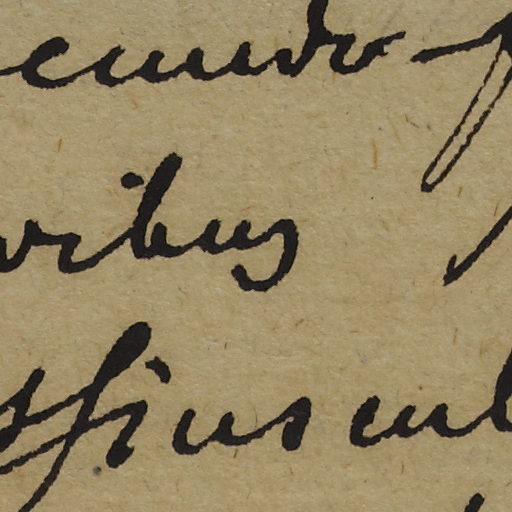 cundo
ribus
ssius cul